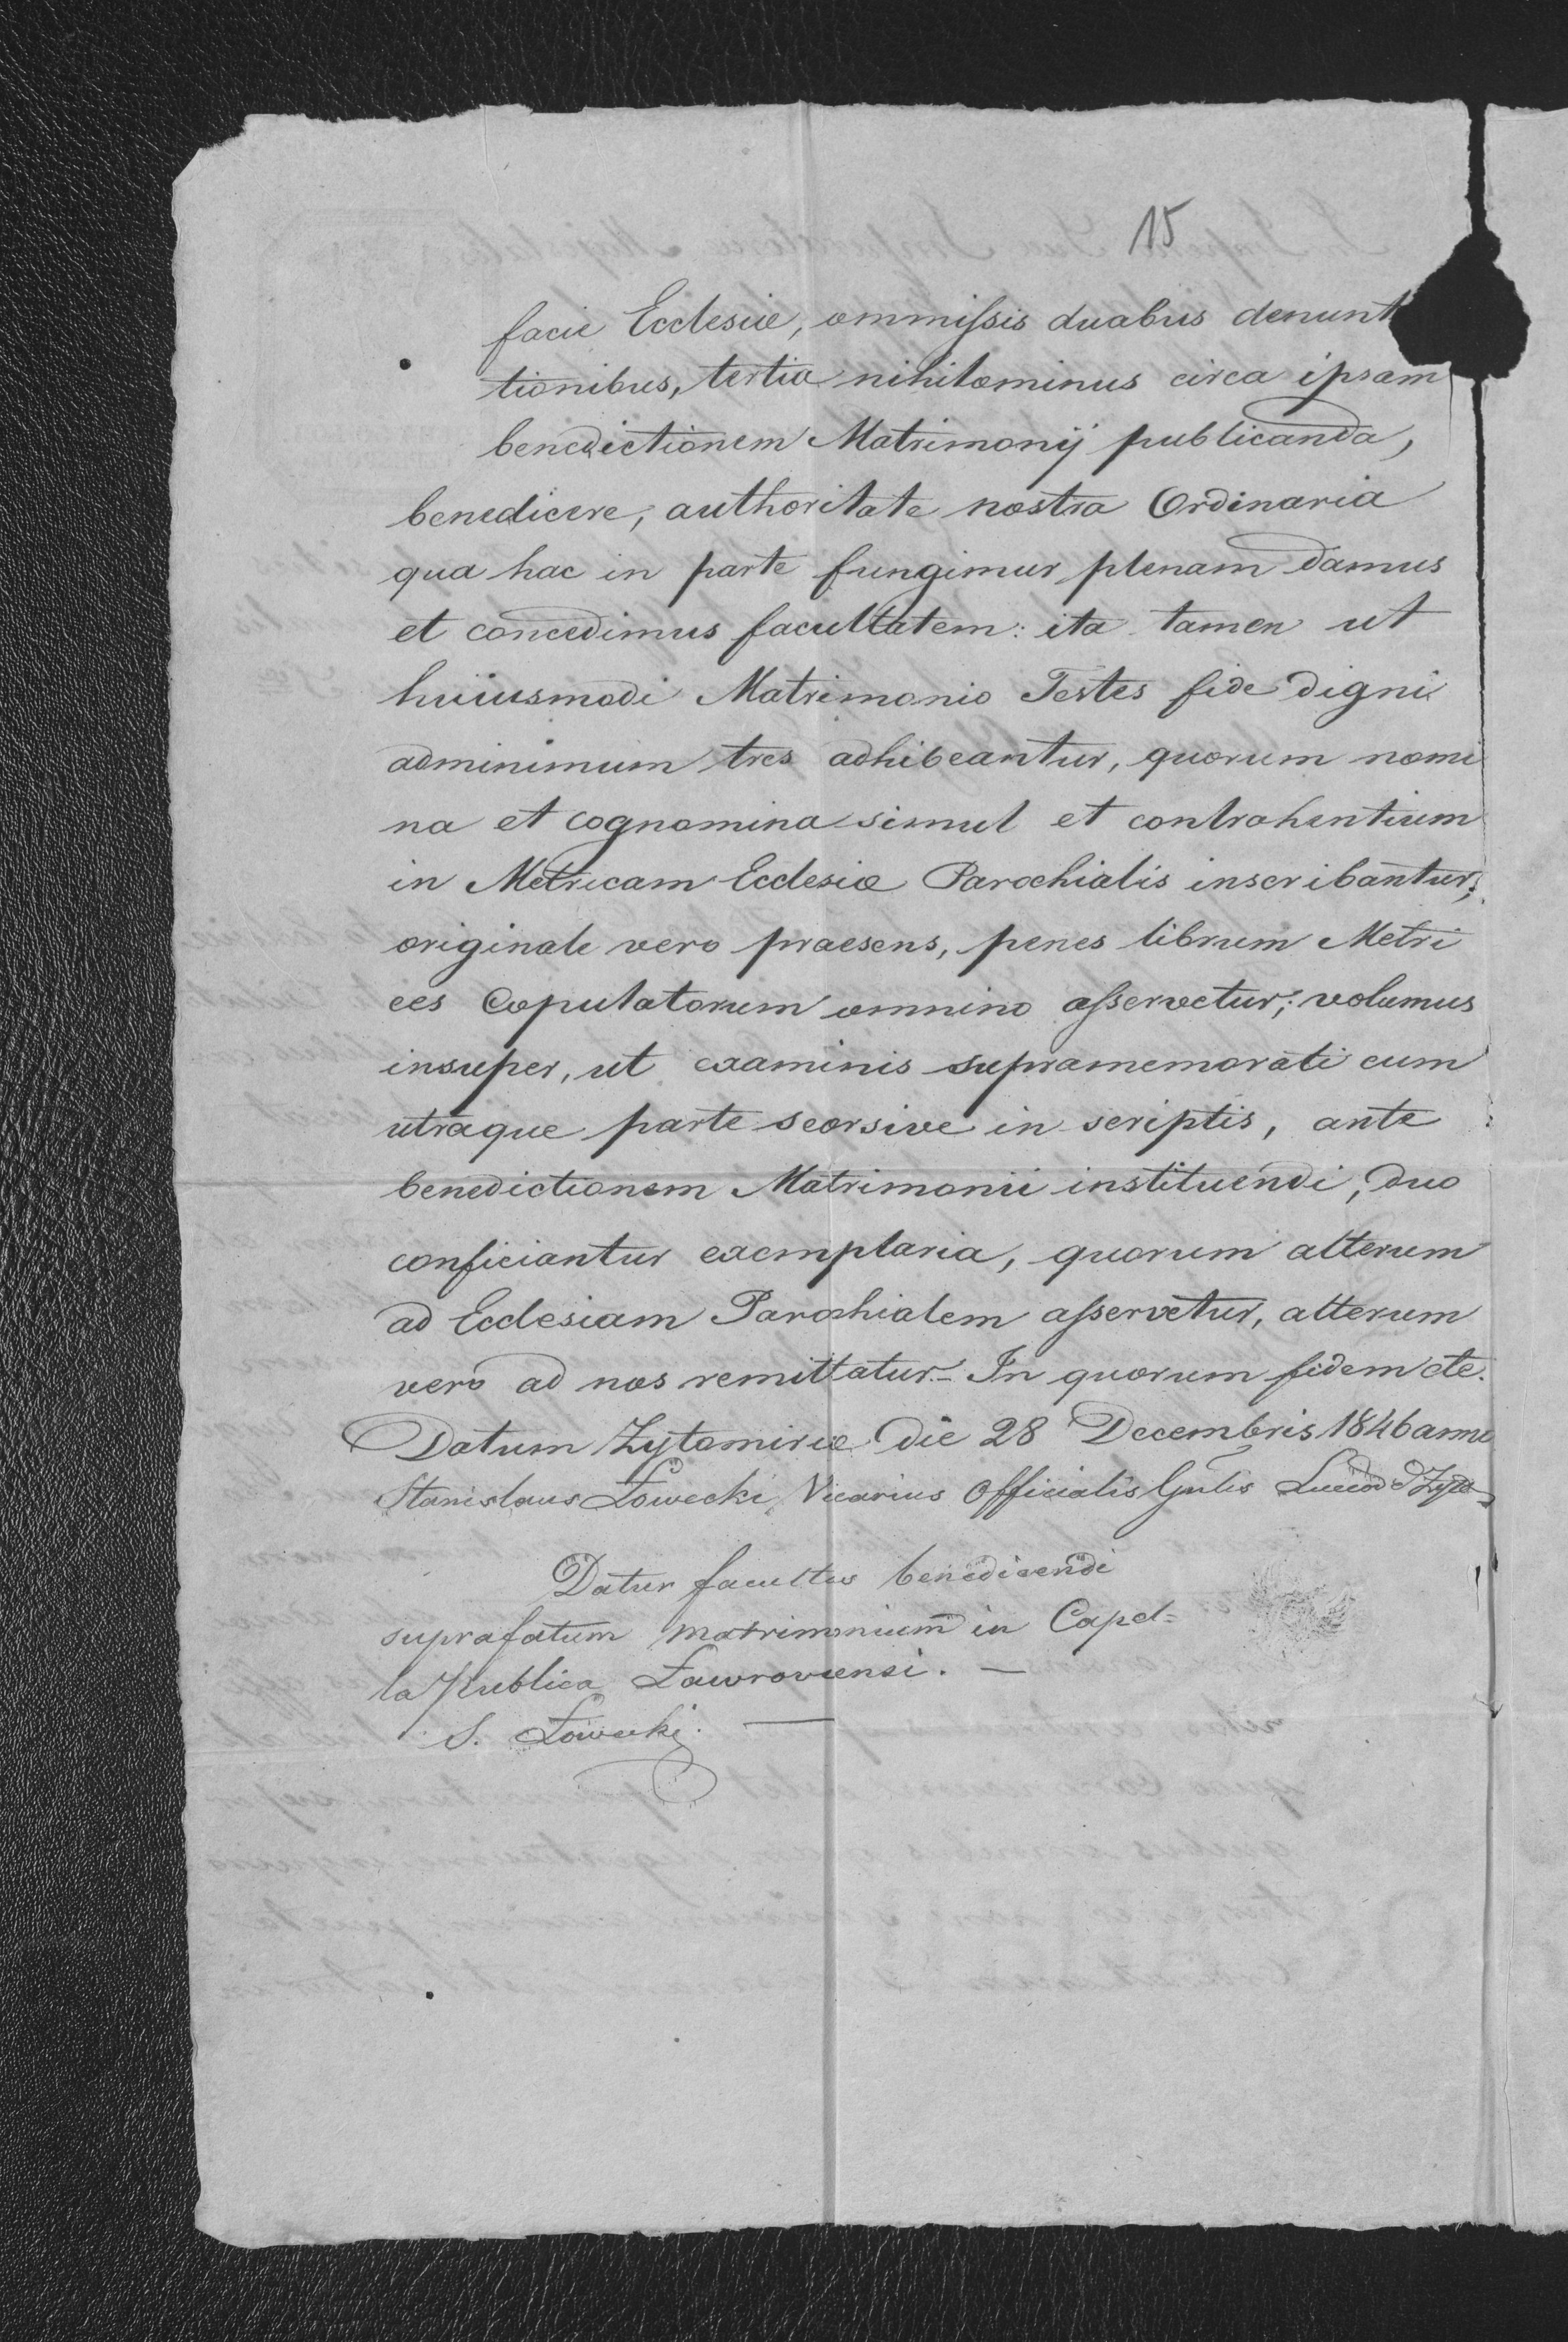 15
facie Ecclesiæ, ommissis duabus denunt
tionibus, tertia nihilominus circa ipsam
benedictionem Matrimonij publicanda,
benedicere, authoritate nostra Ordinaria
qua hac in parte fungimur plenam damus
et concedimus facultatem: ita tamen ut
huiusmodi Matrimonio Testes fide digni
adminimum tres adhibeantur, quorum nomi
na et cognomina simul et contrahentium
in Metricam Ecclesiæ Parochialis inscribantur;
originale vero praesens, penes librum Metri
ces Copulatorum omnino asservetur; volumus
insuper, ut examinis supramemorati cum
utraque parte seorsive in scriptis, ante
benedictionem Matrimonii instituendi, duo
conficiantur exemplaria, quorum alterum
ad Ecclesiam Parochialem asservetur, alterum
vero ad nos remittatur.- In quorum fidem etc.
Datum Zytomiriæ die 28 Decembris 1846 anno
Stanislaus Łowecki Vicarius Officialis Gnlis
Datur facultas benedicendi
suprafatum matrimonium in Capel=
la Publica Ławroviensi. —
S. Łowecki. —